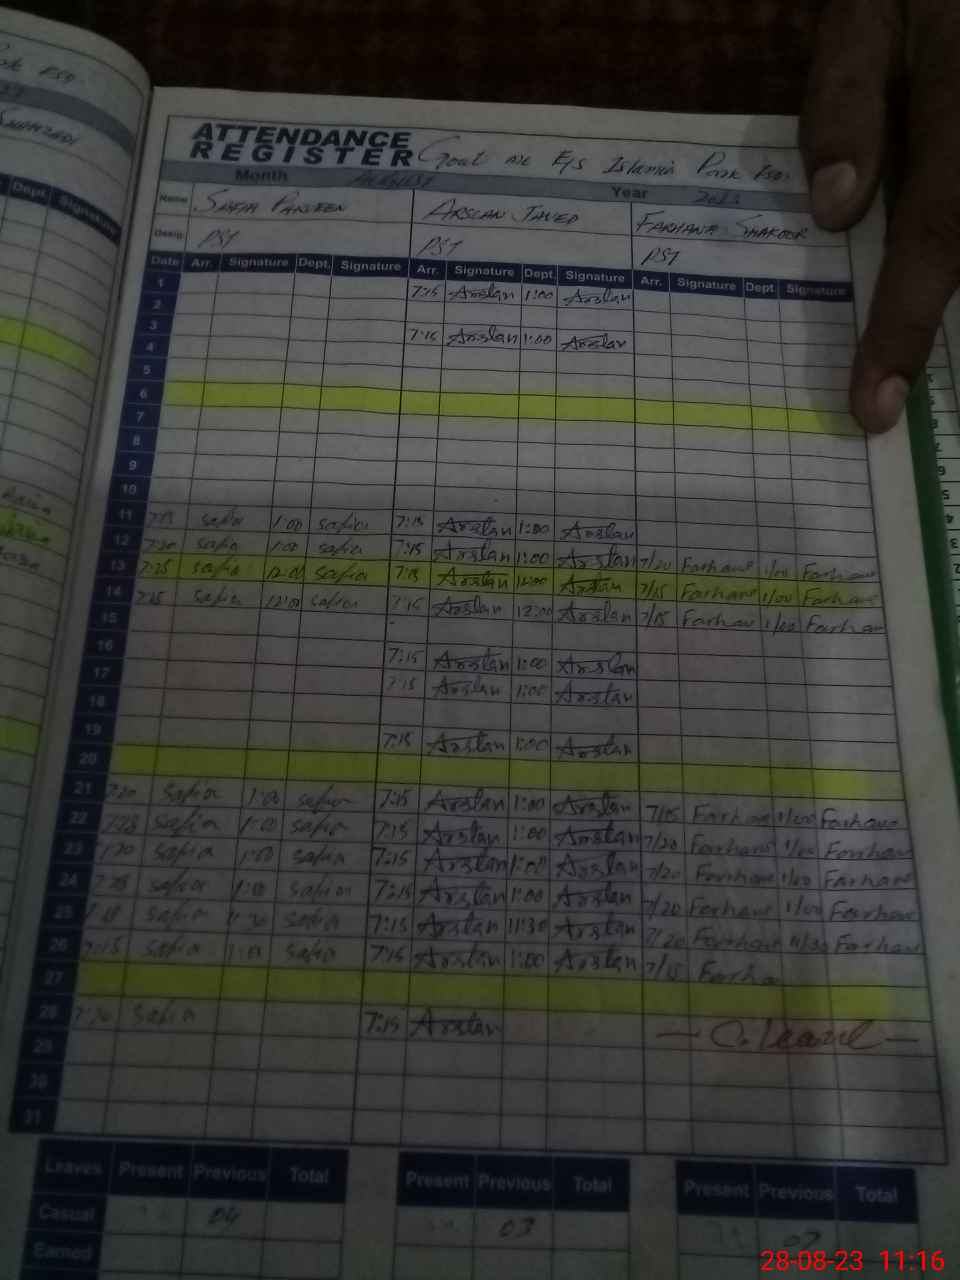 ATTENDANCE
REGISTER Govt M/C E/S Islamia Park FSD.
Month AUGUST Year 2023
Name SAFIA PARVEEN ARSLAN JAVED FARHANA SHAKOOR
Desig: PST PST PST
Date Arr. Signature Dept. Signature Arr. Signature Dept. Signature Arr. Signature Dept. Signature
1 7:15 Arslan 1:00 Arslan
2
3 7:15 Arslan 1:00 Arslan
4
5
6
7
8
9
10
11 7:15 Safia 1:00 Safia 7:15 Arslan 1:00 Arslan
12 7:20 Safia 1:00 Safia 7:15 Arslan 1:00 Arslan 7/20 Farhana 1/00 Farhana
13 7:25 Safia 12:00 Safia 7:15 Arslan 12:00 Arslan 7/15 Farhana 1/00 Farhana
14 7:25 Safia 12:00 Safia 7:15 Arslan 12:00 Arslan 7/15 Farhana 1/00 Farhana
15
16 7:15 Arslan 1:00 Arslan
17 7:15 Arslan 1:00 Arslan
18
19 7:15 Arslan 1:00 Arslan
20
21 7:20 Safia 1:00 Safia 7:15 Arslan 1:00 Arslan 7/15 Farhana 1/00 Farhana
22 Safia 1:00 Safia 7:15 Arslan 1:00 Arslan 7/20 Farhana 1/00 Farhana
23 7:20 Safia 1:00 Safia 7:15 Arslan 1:00 Arslan 7/20 Farhana 1/00 Farhana
24 Safia 1:00 Safia 7:15 Arslan 1:00 Arslan 7/20 Farhana 1/00 Farhana
25 Safia 11:30 Safia 7:15 Arslan 11:30 Arslan 7/20 Farhana 11/30 Farhana
26 7:15 Safia 1:00 Safia 7:15 Arslan 1:00 Arslan 7/15 Farhana
27
28 Safia 7:15 Arslan — C. leave —
29
30
31
Leaves Present Previous Total Present Previous Total Present Previous Total
Casual 04 03 07
Earned
28-08-23 11:16